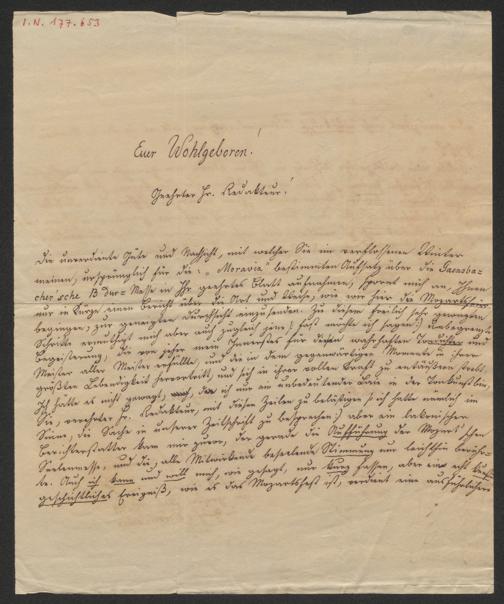 I.N. 177.653
Euer Wohlgeboren!
Geehrter Hr. Redakteur!
Die unverdiente Güte und Nachsicht, mit welcher Sie im verfloßenen Winter
meinen, ursprünglich für die „Moravia" bestimmten Aufsatz über die Gaensba-
cher'sche B dur-Messe in Ihr geehrtes Blatt aufnahmen, spornt mich an, Ihnen
nur in Kürze einen Bericht über die Art und Weise, wie wir hier das Mozartfest
begingen, zur geneigten Durchsicht einzusenden. Zu diesem freilich sehr gewagten
Schritte ermuthigt mich aber auch zugleich jene (fast möchte ich sagen)
Begeisterung, die von jeher mein Innerstes für den wahrhaften und
Meister aller Meister erfüllte, und die in dem gegenwärtigen Momente in ihrer
größten Lebendigkeit hervortritt, und sich in ihrer vollen Kraft zu entäußern strebt.
Ich hätte es nicht gewagt, der ich nur ein unbedeutender Laie in der Tonkunst bin,
Sie, verehrter Hr. Redakteur, mit diesen Zeilen zu belästigen (ich hatte nemlich im
Sinne, die Sache in unserer Zeitschrift zu besprechen) aber ein lakonischer
Berichterstatter kam mir zuvor, der gerade die Aufführung der Mozart'schen
Seelenmesse, und die, alle Mitwirkende beseelende Stimmung nur leichthin berühr-
te. Auch ich kann und will mich, wie gesagt, nur kurz fassen, aber ein
geschichtliches Ereigniß, wie es das Mozartfest ist, verdient eine ausführlichere